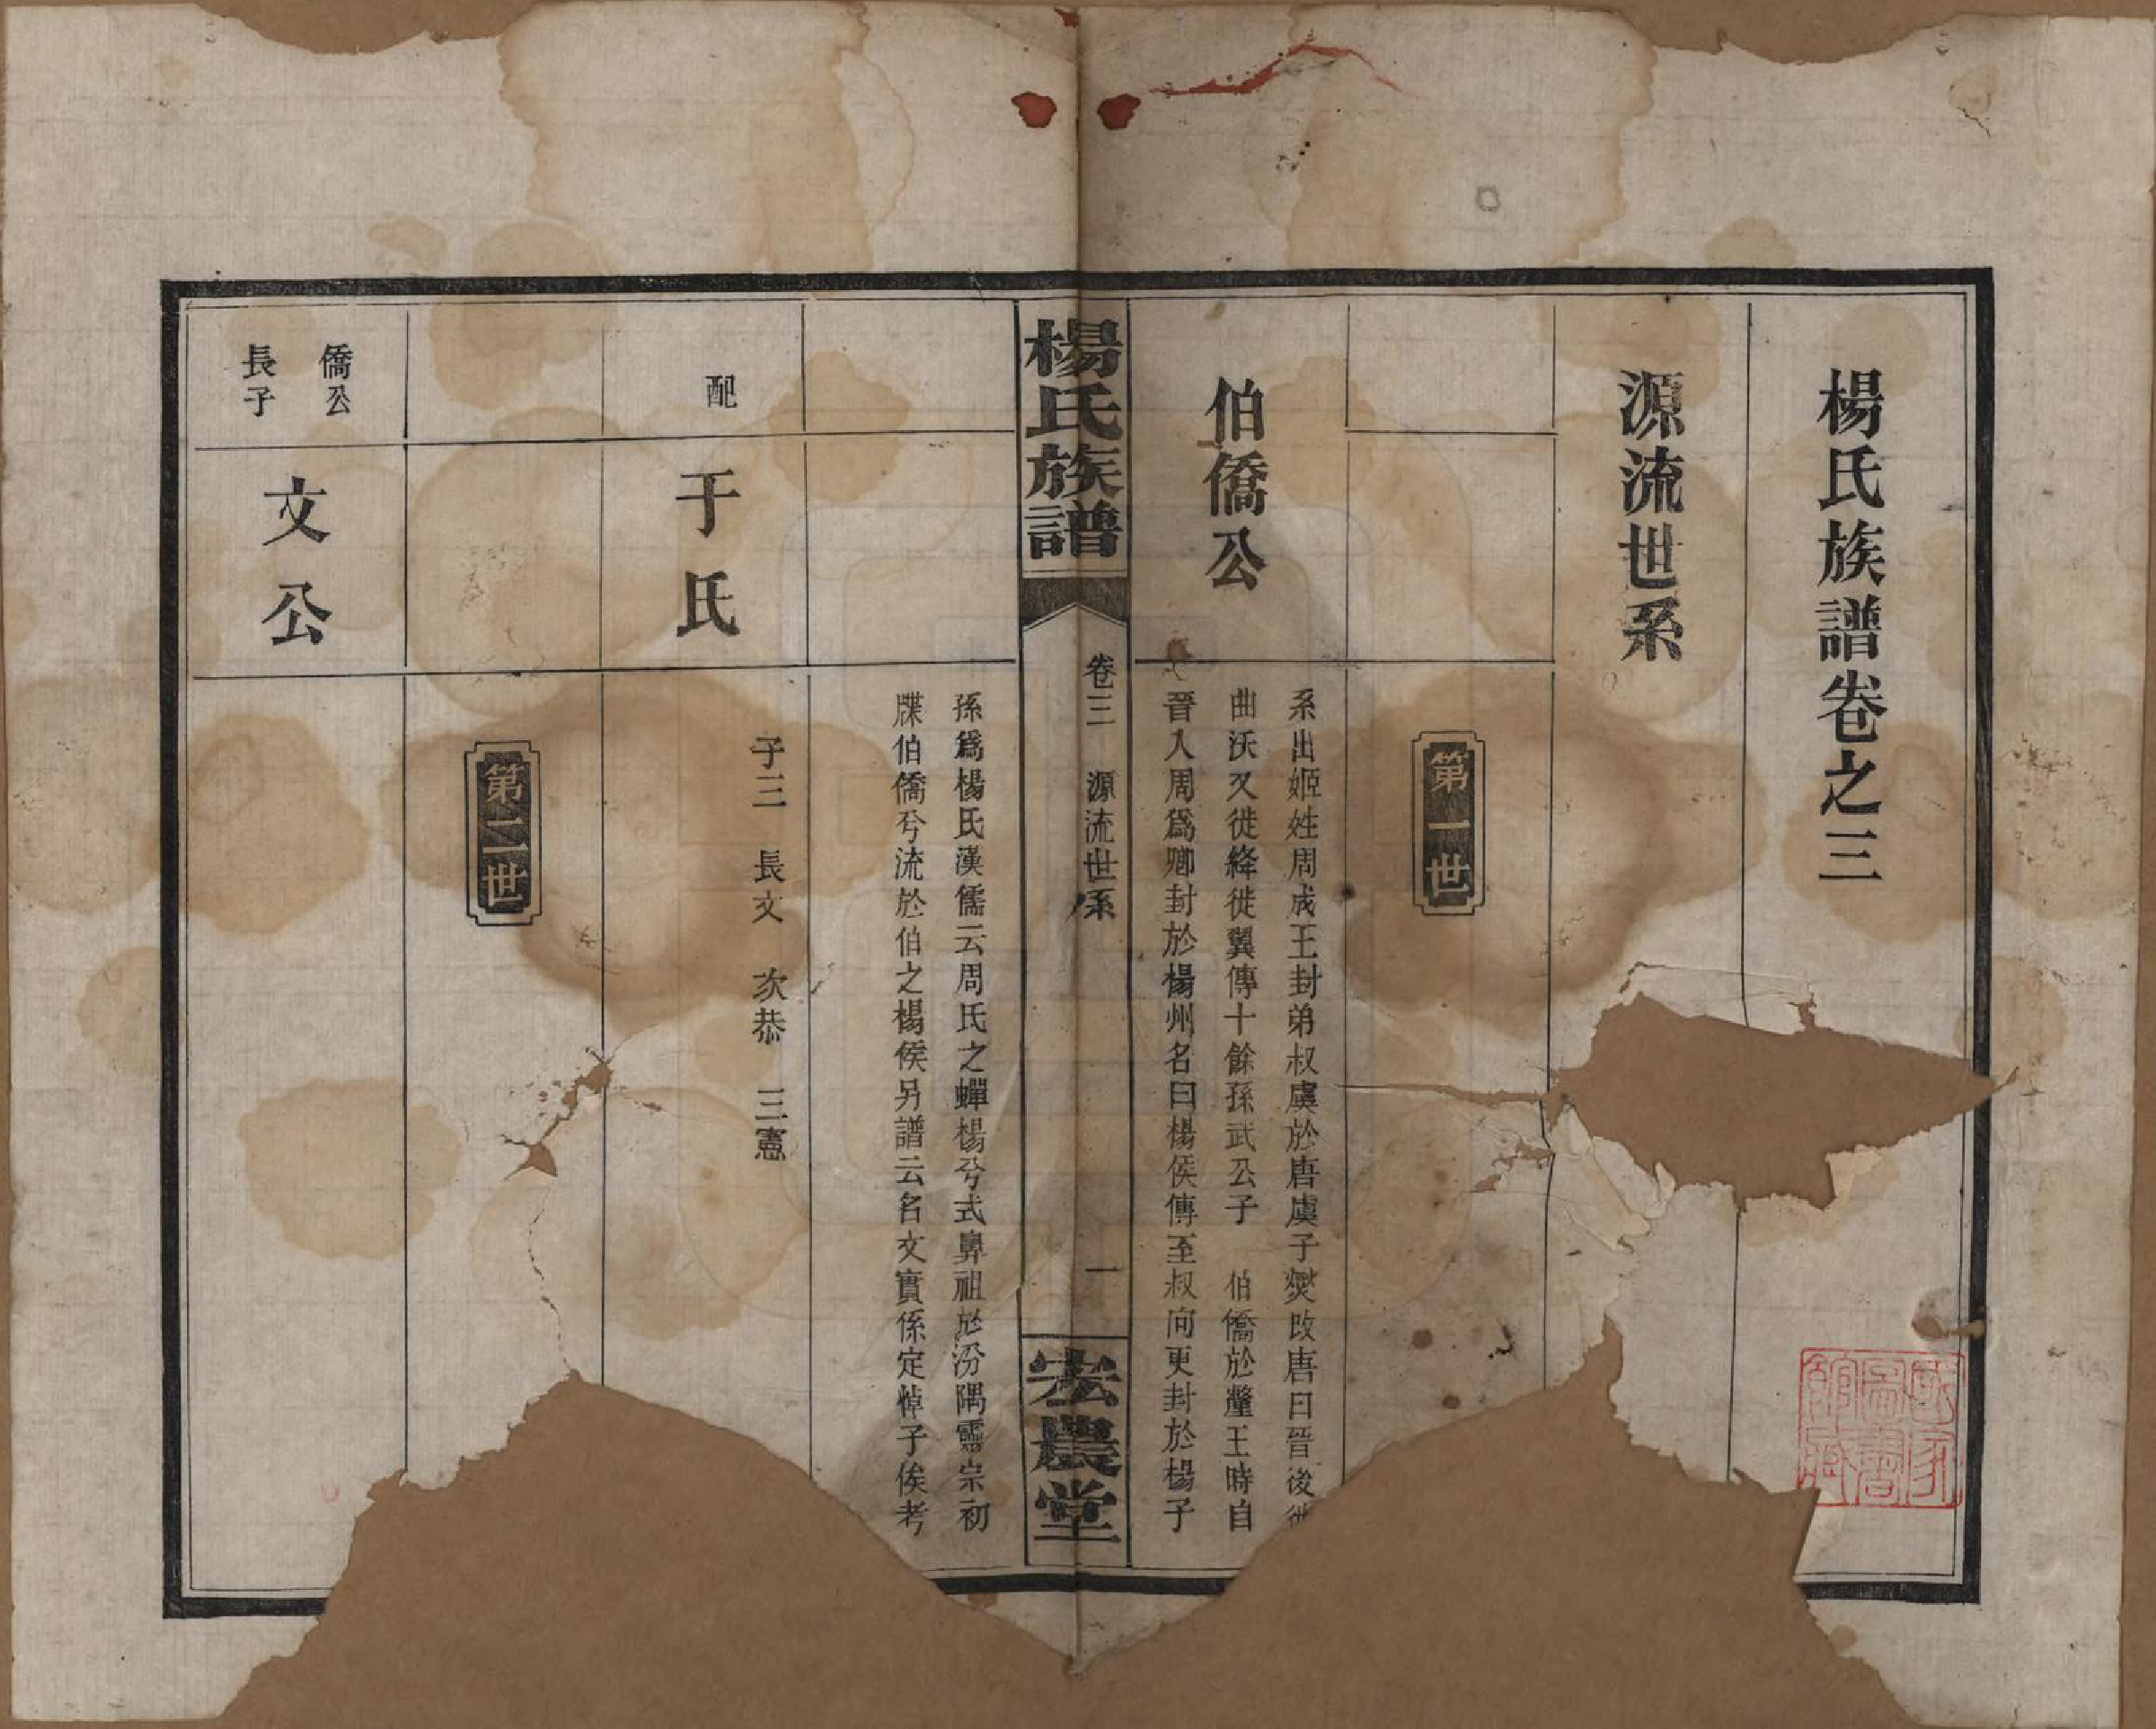 楊氏族譜卷之三
源流世系
第一世
伯僑公
系出姬姓周成王封弟叔虞於唐虞子燮改唐曰晉後徙
曲沃又徙絳徙翼傳十餘孫武公子 伯僑於釐王時自
晉入周爲卿封於楊州名曰楊侯傳至叔向更封於楊子
楊氏族譜
卷三 源流世系 一
宏農堂
孫爲楊氏漢儒云周氏之蟬楊兮式鼻祖於汾隅靈宗初
牒伯僑兮流於伯之楊侯另譜云名文實係定悼子俟考
配
于氏
子三 長文 次恭 三憲
第二世
僑公
長子
文公
國家
圖書
館藏